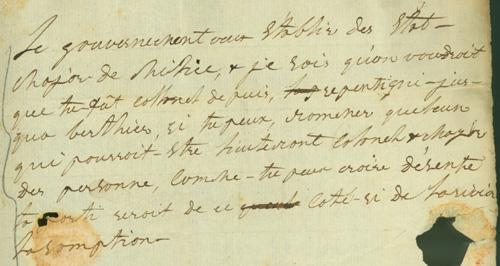 Le gouvernement veux Etablir des Etat-
major de Milice, & je sais qu'on voudroit
que tu fût collonel depuis, repentigni-jus-
qua berthier, si tu peux, nomener quelcun
qui pourroit-etre Lieutenant Colonel & major
des personne, comme-tu peux croire désente
ta parti seroit de ce côté-si de la rivier
Lasomption-